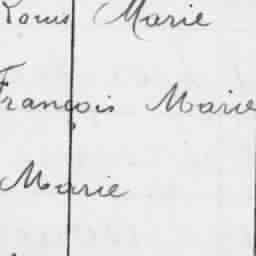 Louis Marie
François Marie
Marie